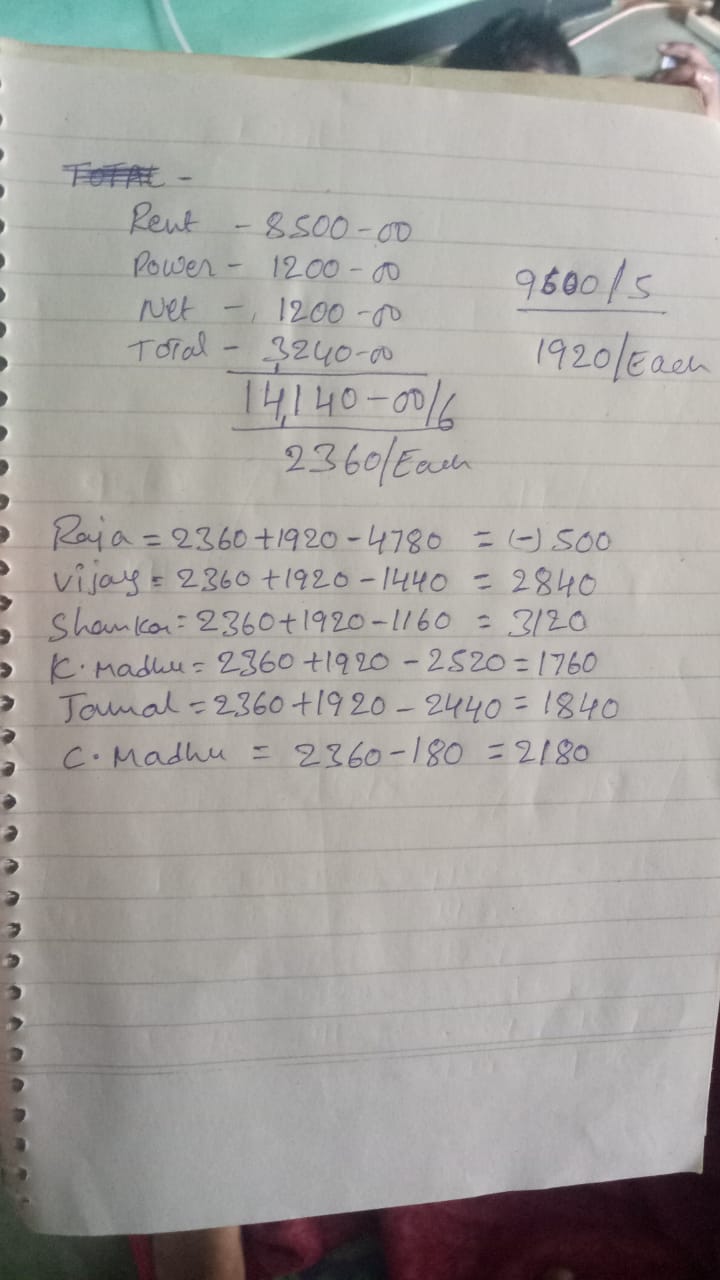 TOTAL -
Rent - 8500-00
Power - 1200-00
Net - 1200-00
Total - 3240-00
14,140-00/6
2360/Each
9600/5
1920/Each
Raja = 2360+1920-4780 = (-) 500
Vijay = 2360+1920-1440 = 2840
Shankar = 2360+1920-1160 = 3120
K. Madhu = 2360+1920-2520 = 1760
Jamal = 2360+1920-2440 = 1840
C. Madhu = 2360-180 = 2180